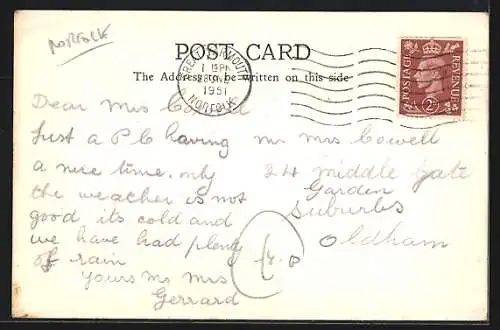 NORFOLK
POST CARD
The Address to be written on this side
GREAT YARMOUTH
1 15PM
1951
NORFOLK
POSTAGE REVENUE
Dear Mrs
Just a P C having
a nice time, only
the weather is not
good its cold and
we have had plenty
of rain
Yours Mr Mrs
Gerrard
Mr Cowell
24 middle Gate
Garden
Suburbs
Oldham